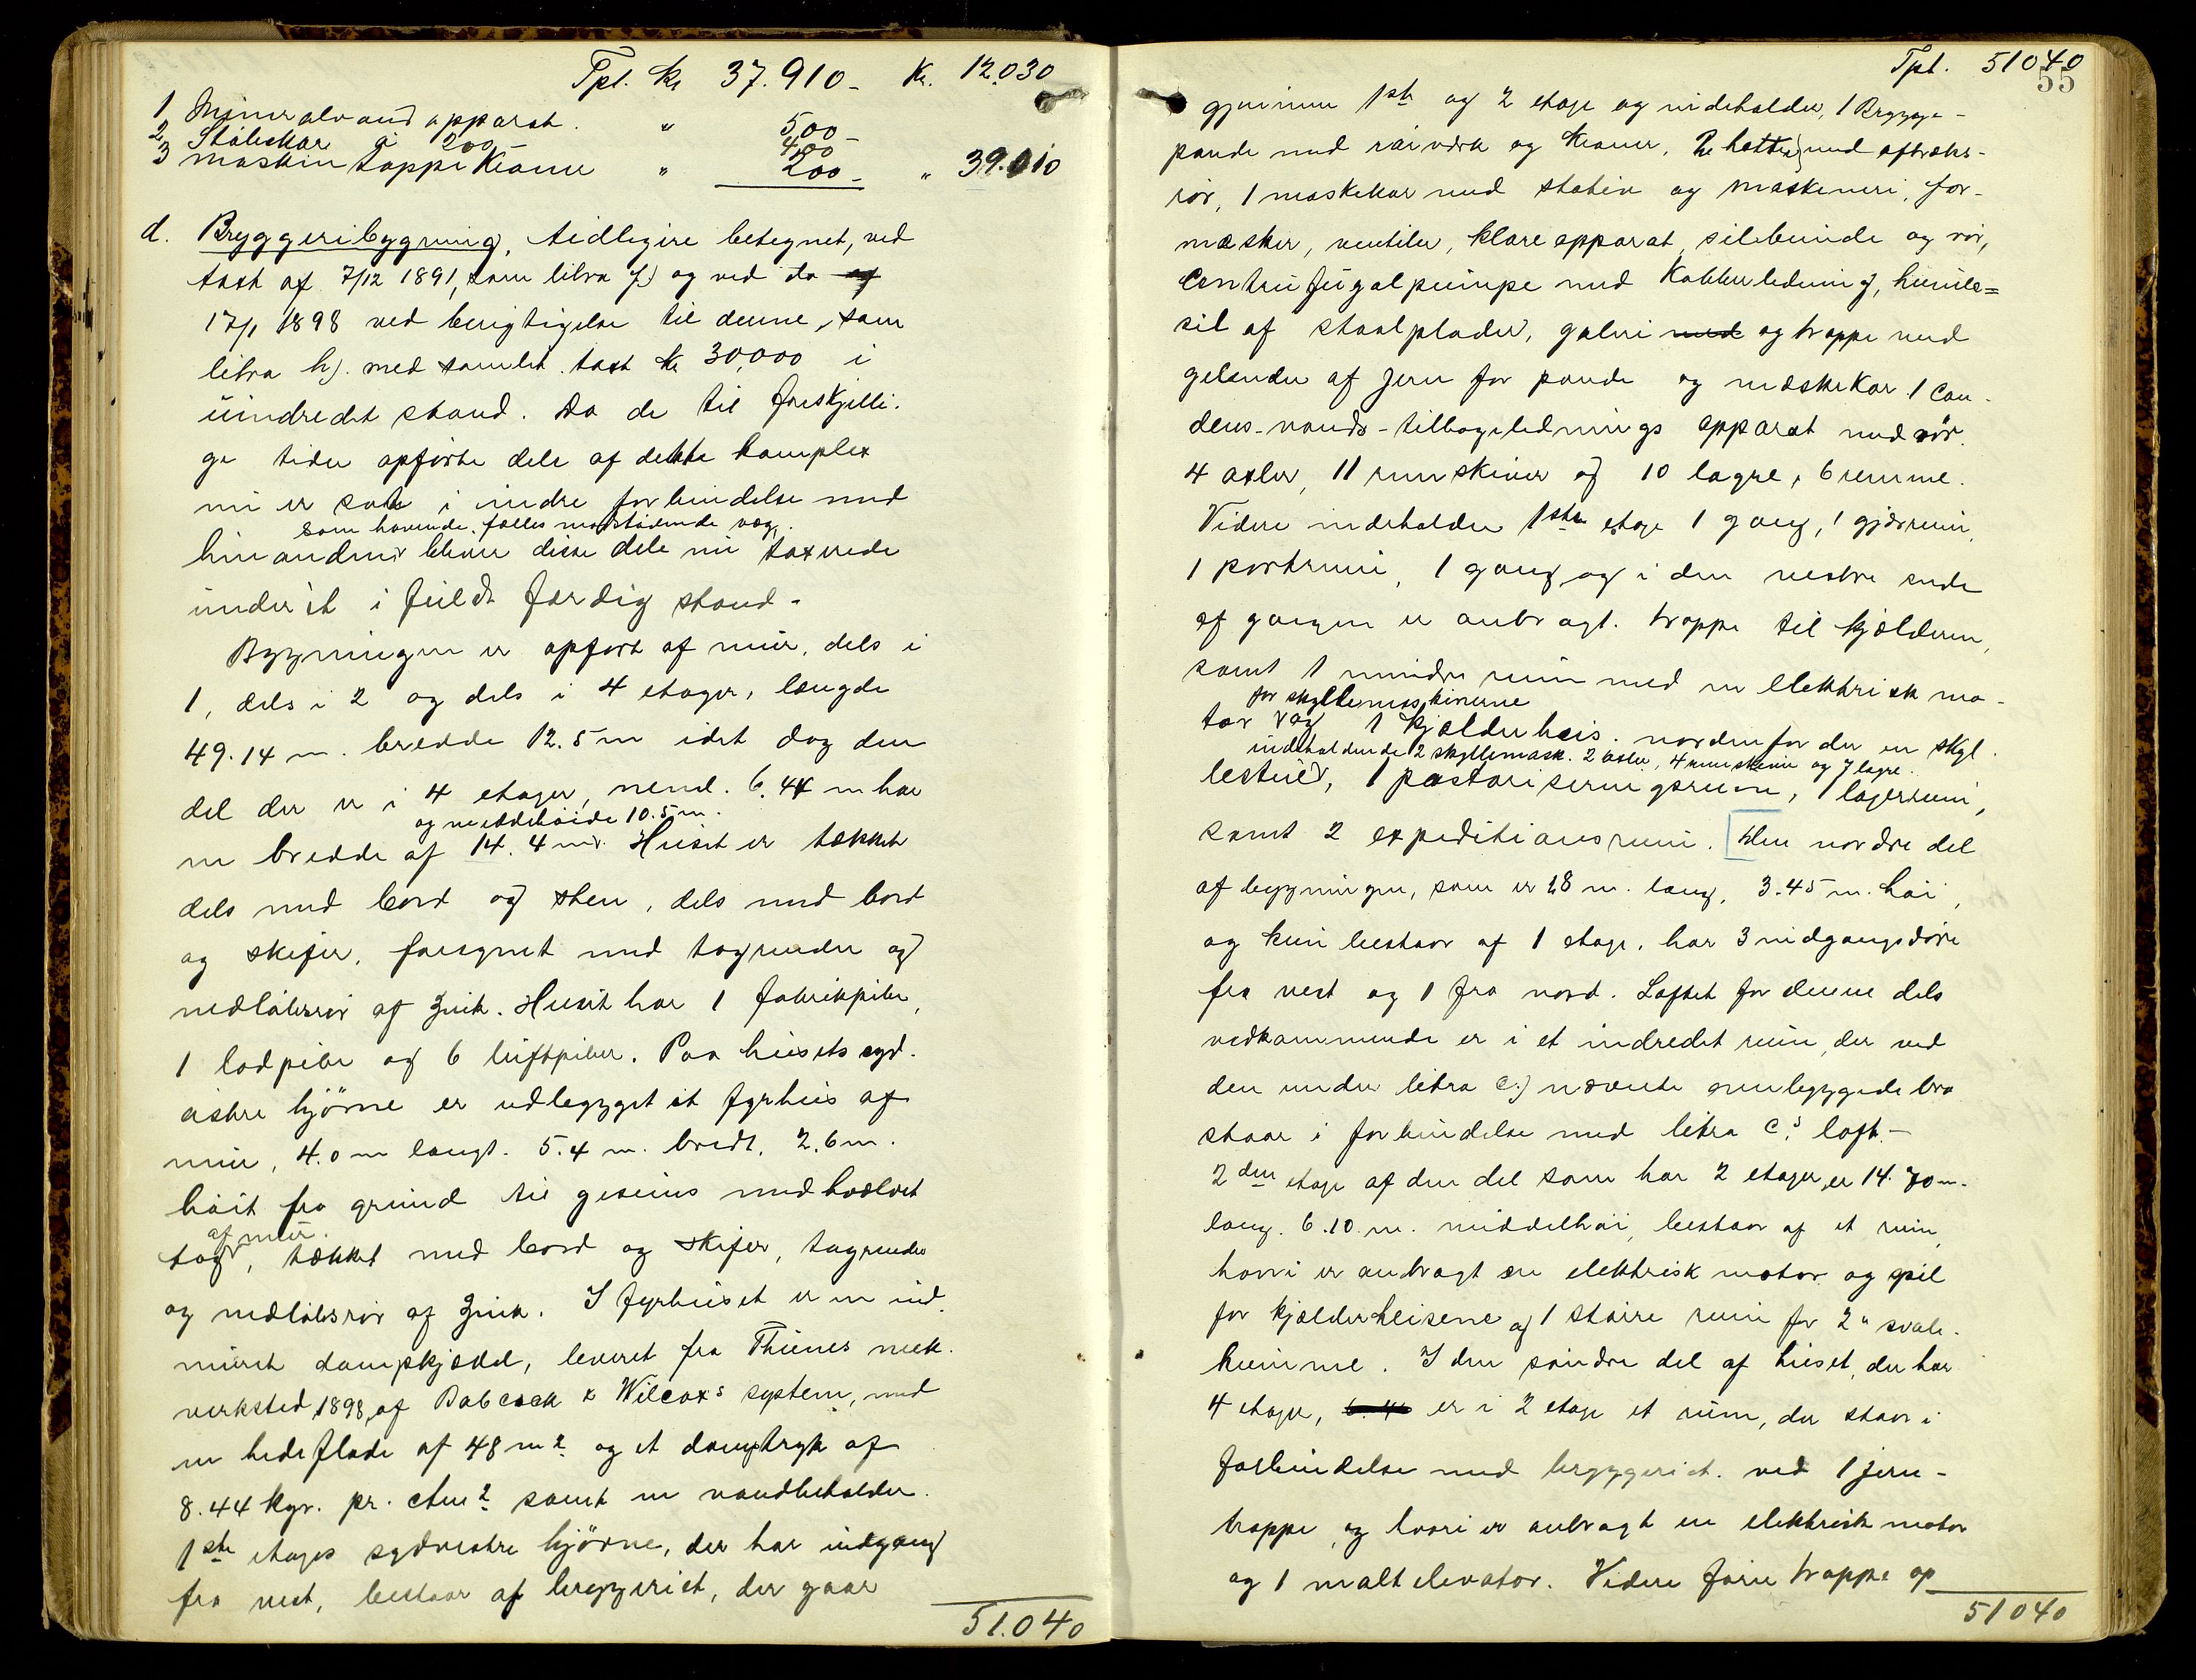 Tpt. Kr 37.910 - Kr. 12.030
1 Mineralvandapparat. " 500 -
2 Stålekar à 200 - 400 -
3 maskintappekraner " 200 - " 39.010
d. Bryggeribygning, tidligere betegnet, ved
taxt af 7/12 1891, som litra f) og ved do af
17/1 1898 ved berigtigelse til denne, som
litra h). med samlet taxt kr 30,000 i
uindredet stand. Da de til forskjelli-
ge tider opførte dele af dette komplex
nu er sat i indre forbindelse med
som havende fælles modstødende væg.
hinanden, bliver disse dele nu taxerede
under et i fuldt færdig stand -
Bygningen er opført af mur, dels i
1, dels i 2 og dels i 4 etager, længde
49.14 m. bredde 12.5 m idet dog den
del der er i 4 etager, neml. 6.44 m har
og middelhøide 10.5 m.
en bredde af 14.4 m. Huset er tækket
dels med bord og sten, dels med bord
og skifer, forsynet med tagrender og
nedløbsrør af zink. Huset har 1 fabrikpibe,
1 lodpibe og 6 luftpiber. Paa husets syd-
østre hjørne er udbygget et fyrhus af
mur, 4.0 m langt. 5.4 m. bredt, 2.6 m.
høit fra grund til gesims med hvælvet
af mur.
tag, tækket med bord og skifer, tagrender
og nedløbsrør af zink. I fyrhuset er en ind-
muret dampkjedel, leveret fra Thunes mek.
verksted, 1898, af Babcock & Wilcox's system, med
en hedeflade af 48 m2 og et damptryk af
8.44 kgr. pr. ctm2 samt en vandbeholder.
1ste etages sydvestre hjørne, der har indgang
fra vest, bestaar af bryggeriet, der gaar
51.040
Tpt. 51040
55
gjennem 1ste og 2 etage og indeholder, 1 Brygge-
pande med rørværk og kraner, 2 hætter med aftræks-
rør, 1 mæskekar med stativ og maskineri, for-
mæsker, ventiler, klareapparat, silebunde og rør,
Centrifugalpumpe med Kobberledning, humle=
sil af staalplader, galleri med og trappe med
gelænder af jern for pande og mæskekar. 1 Con-
dens-vands-tilbageledningsapparat med rør.
4 axler, 11 remskiver og 10 lagre, 6 remme.
Videre indeholder 1ste etage 1 gang, 1 gjærrum,
1 portrum, 1 gang og i den vestre ende
af gangen er anbragt trappe til kjælderen,
samt 1 mindre rum med en elektrisk mo-
for skyllemaskinerne
tor og 1 kjælderheis. nordenfor der en skyl-
indeholdende 2 skyllemask. 2 axler, 4 remskiver og 7 lagre.
lestue, 1 pastoriseringsrum, 1 lagerrum,
samt 2 expeditionsrum. Den nordre del
af bygningen, som er 28 m. lang, 3.45 m. høi,
og kun bestaar af 1 etage, har 3 indgangsdøre
fra vest og 1 fra nord. Loftet for denne dels
vedkommende er i et indredet rum, der ved
den under litra c.) nævnte ombyggede bro
staar i forbindelse med litra c.s loft -
2den etage af den del som har 2 etager, er 14.70 m.
lang. 6.10 m. middelhøi, bestaar af et rum,
hvori er anbragt en elektrisk motor og spil
for kjælderheisene og 1 større rum for 2 svale-
kummer. I den søndre del af huset, der har
4 etager, er i 2 etage et rum, der staar i
forbindelse med bryggeriet. ved 1 jern-
trappe, og hvori er anbragt en elektrisk motor
og 1 maltelevator. Videre fører trappe op
51040